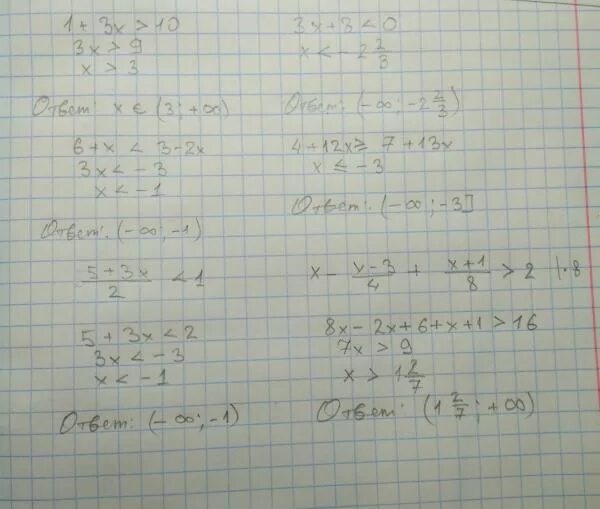 1 + 3x > 10
3x > 9
x > 3
Ответ: x ∈ (3; +∞)
6 + x < 3 - 2x
3x < -3
x < -1
Ответ: (-∞; -1)
(5 + 3x)/2 < 1
5 + 3x < 2
3x < -3
x < -1
Ответ: (-∞; -1)
3x + 3 < 0
x < -2 2/3
Ответ: (-∞; -2 2/3)
4 + 12x ≥ 7 + 13x
x ≤ -3
Ответ: (-∞; -3]
x - (x-3)/4 + (x+1)/8 > 2 |·8
8x - 2x + 6 + x + 1 > 16
7x > 9
x > 1 2/7
Ответ: (1 2/7; +∞)